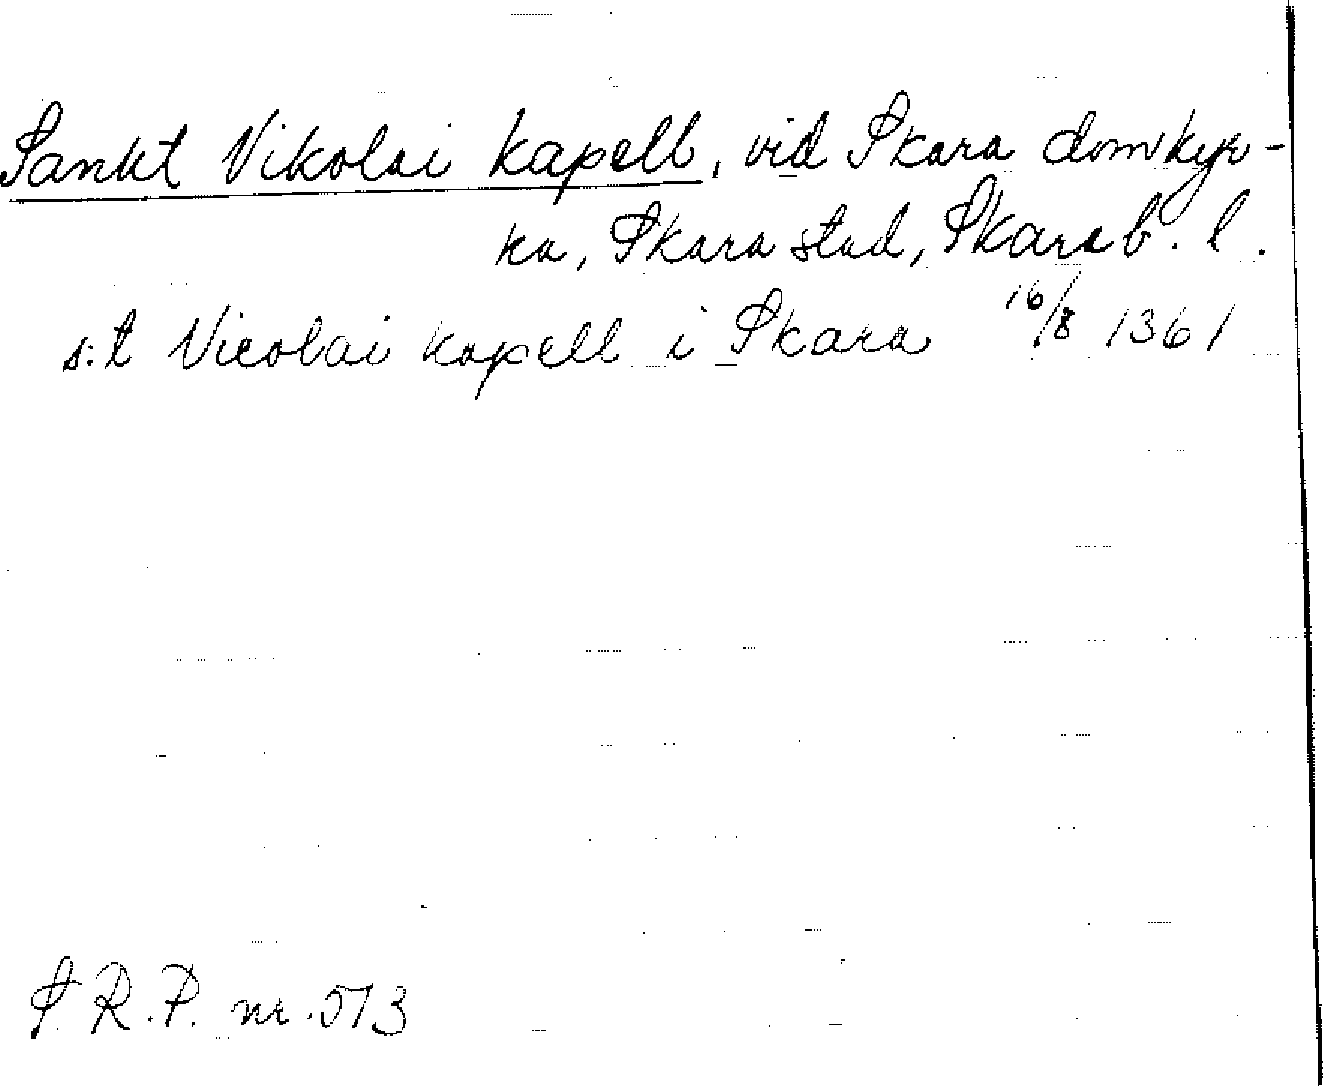 Sankt Nikolai kapell, vid Skara domkyr-
ka, Skara stad, Skarab. l.
s:t Nicolai kapell i Skara 16/8 1361
S.R.P. nr. 573